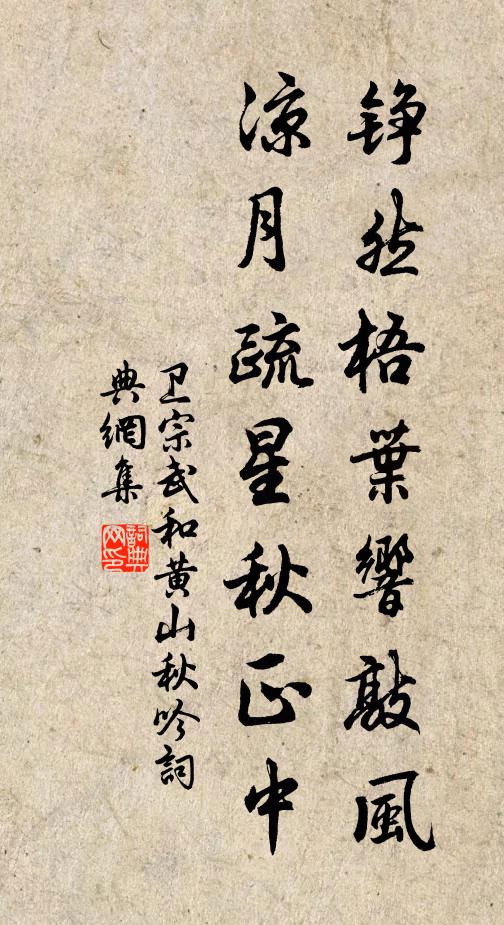 铮然梧葉響敲風
凉月疏星秋正中
卫宗武和黄山秋吟詞
典網集
詞典网印